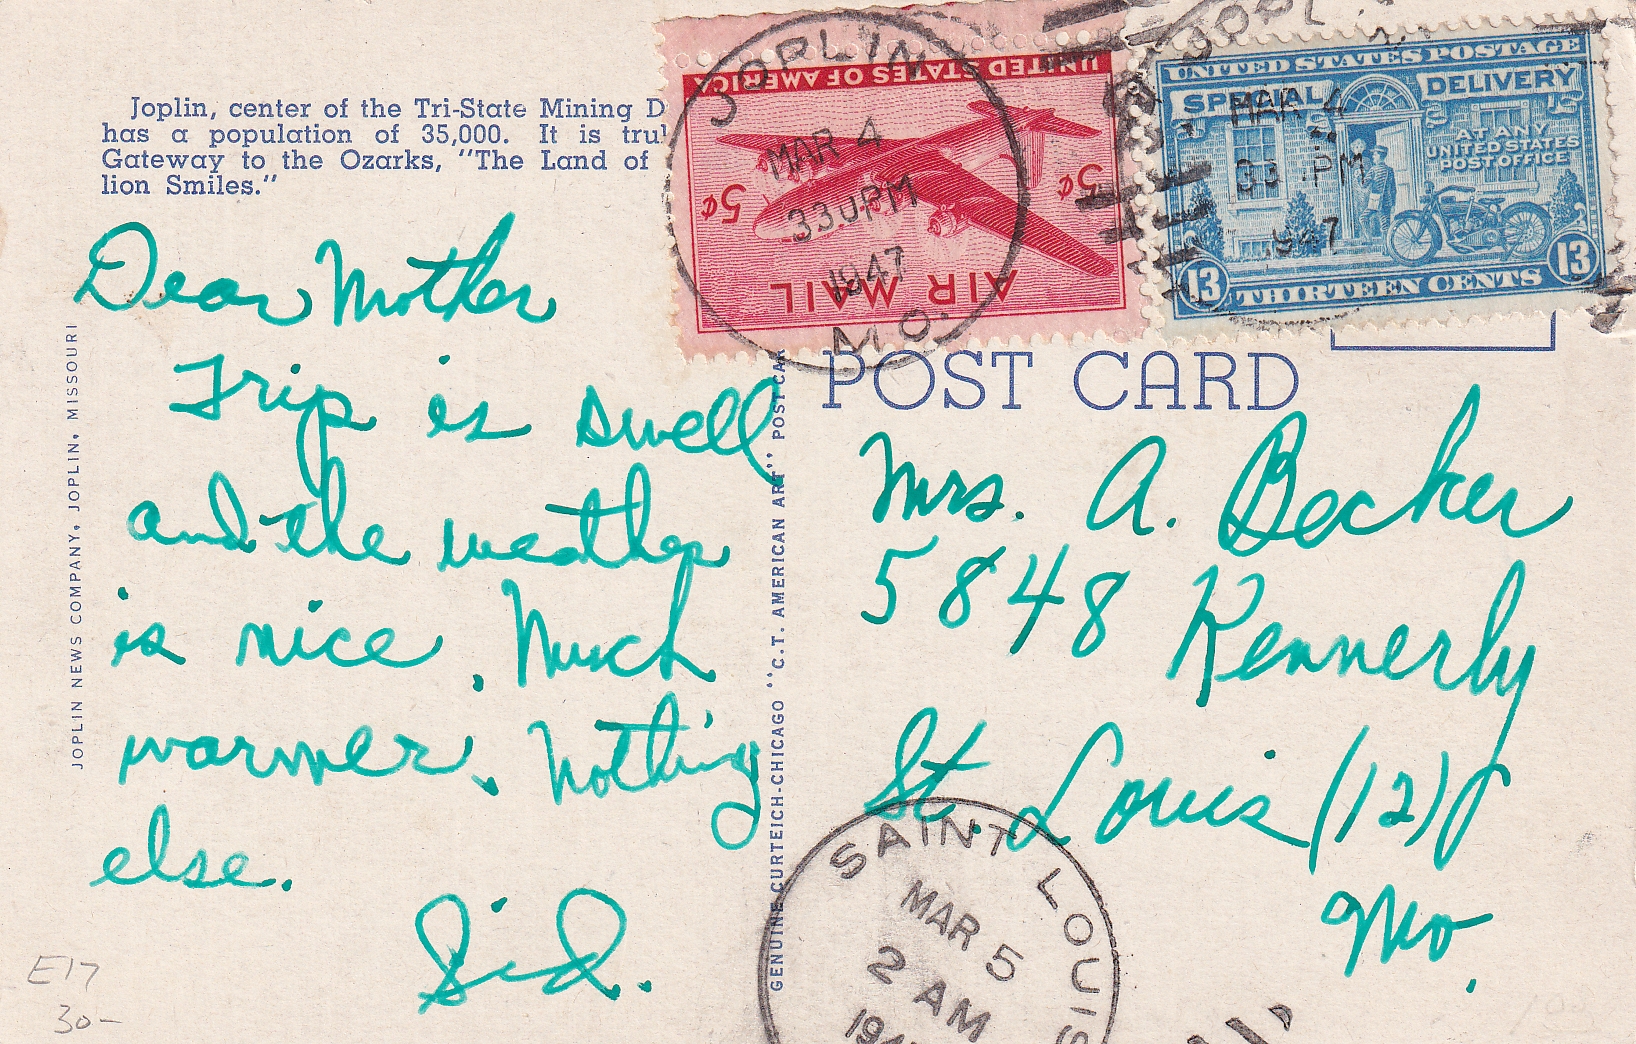 Joplin, center of the Tri-State Mining D
has a population of 35,000. It is trul
Gateway to the Ozarks, "The Land of
lion Smiles."
Dear Mother
Trip is swell
and the weather
is nice. Much
warmer. Nothing
else.
Sid.
JOPLIN NEWS COMPANY, JOPLIN, MISSOURI
GENUINE CURTEICH-CHICAGO "C.T. AMERICAN ART" POST CAR
UNITED STATES OF AMERICA
5¢ 5¢
AIR MAIL
JOPLIN
MAR 4
330PM
1947
MO.
UNITED STATES POSTAGE
SPECIAL DELIVERY
AT ANY
UNITED STATES
POST OFFICE
13 THIRTEEN CENTS 13
JOPL
MAR 4
PM
1947
POST CARD
Mrs. A. Becker
5848 Kennerly
St. Louis (12)
Mo.
SAINT LOUIS
MAR 5
2 AM
194
E17
30-